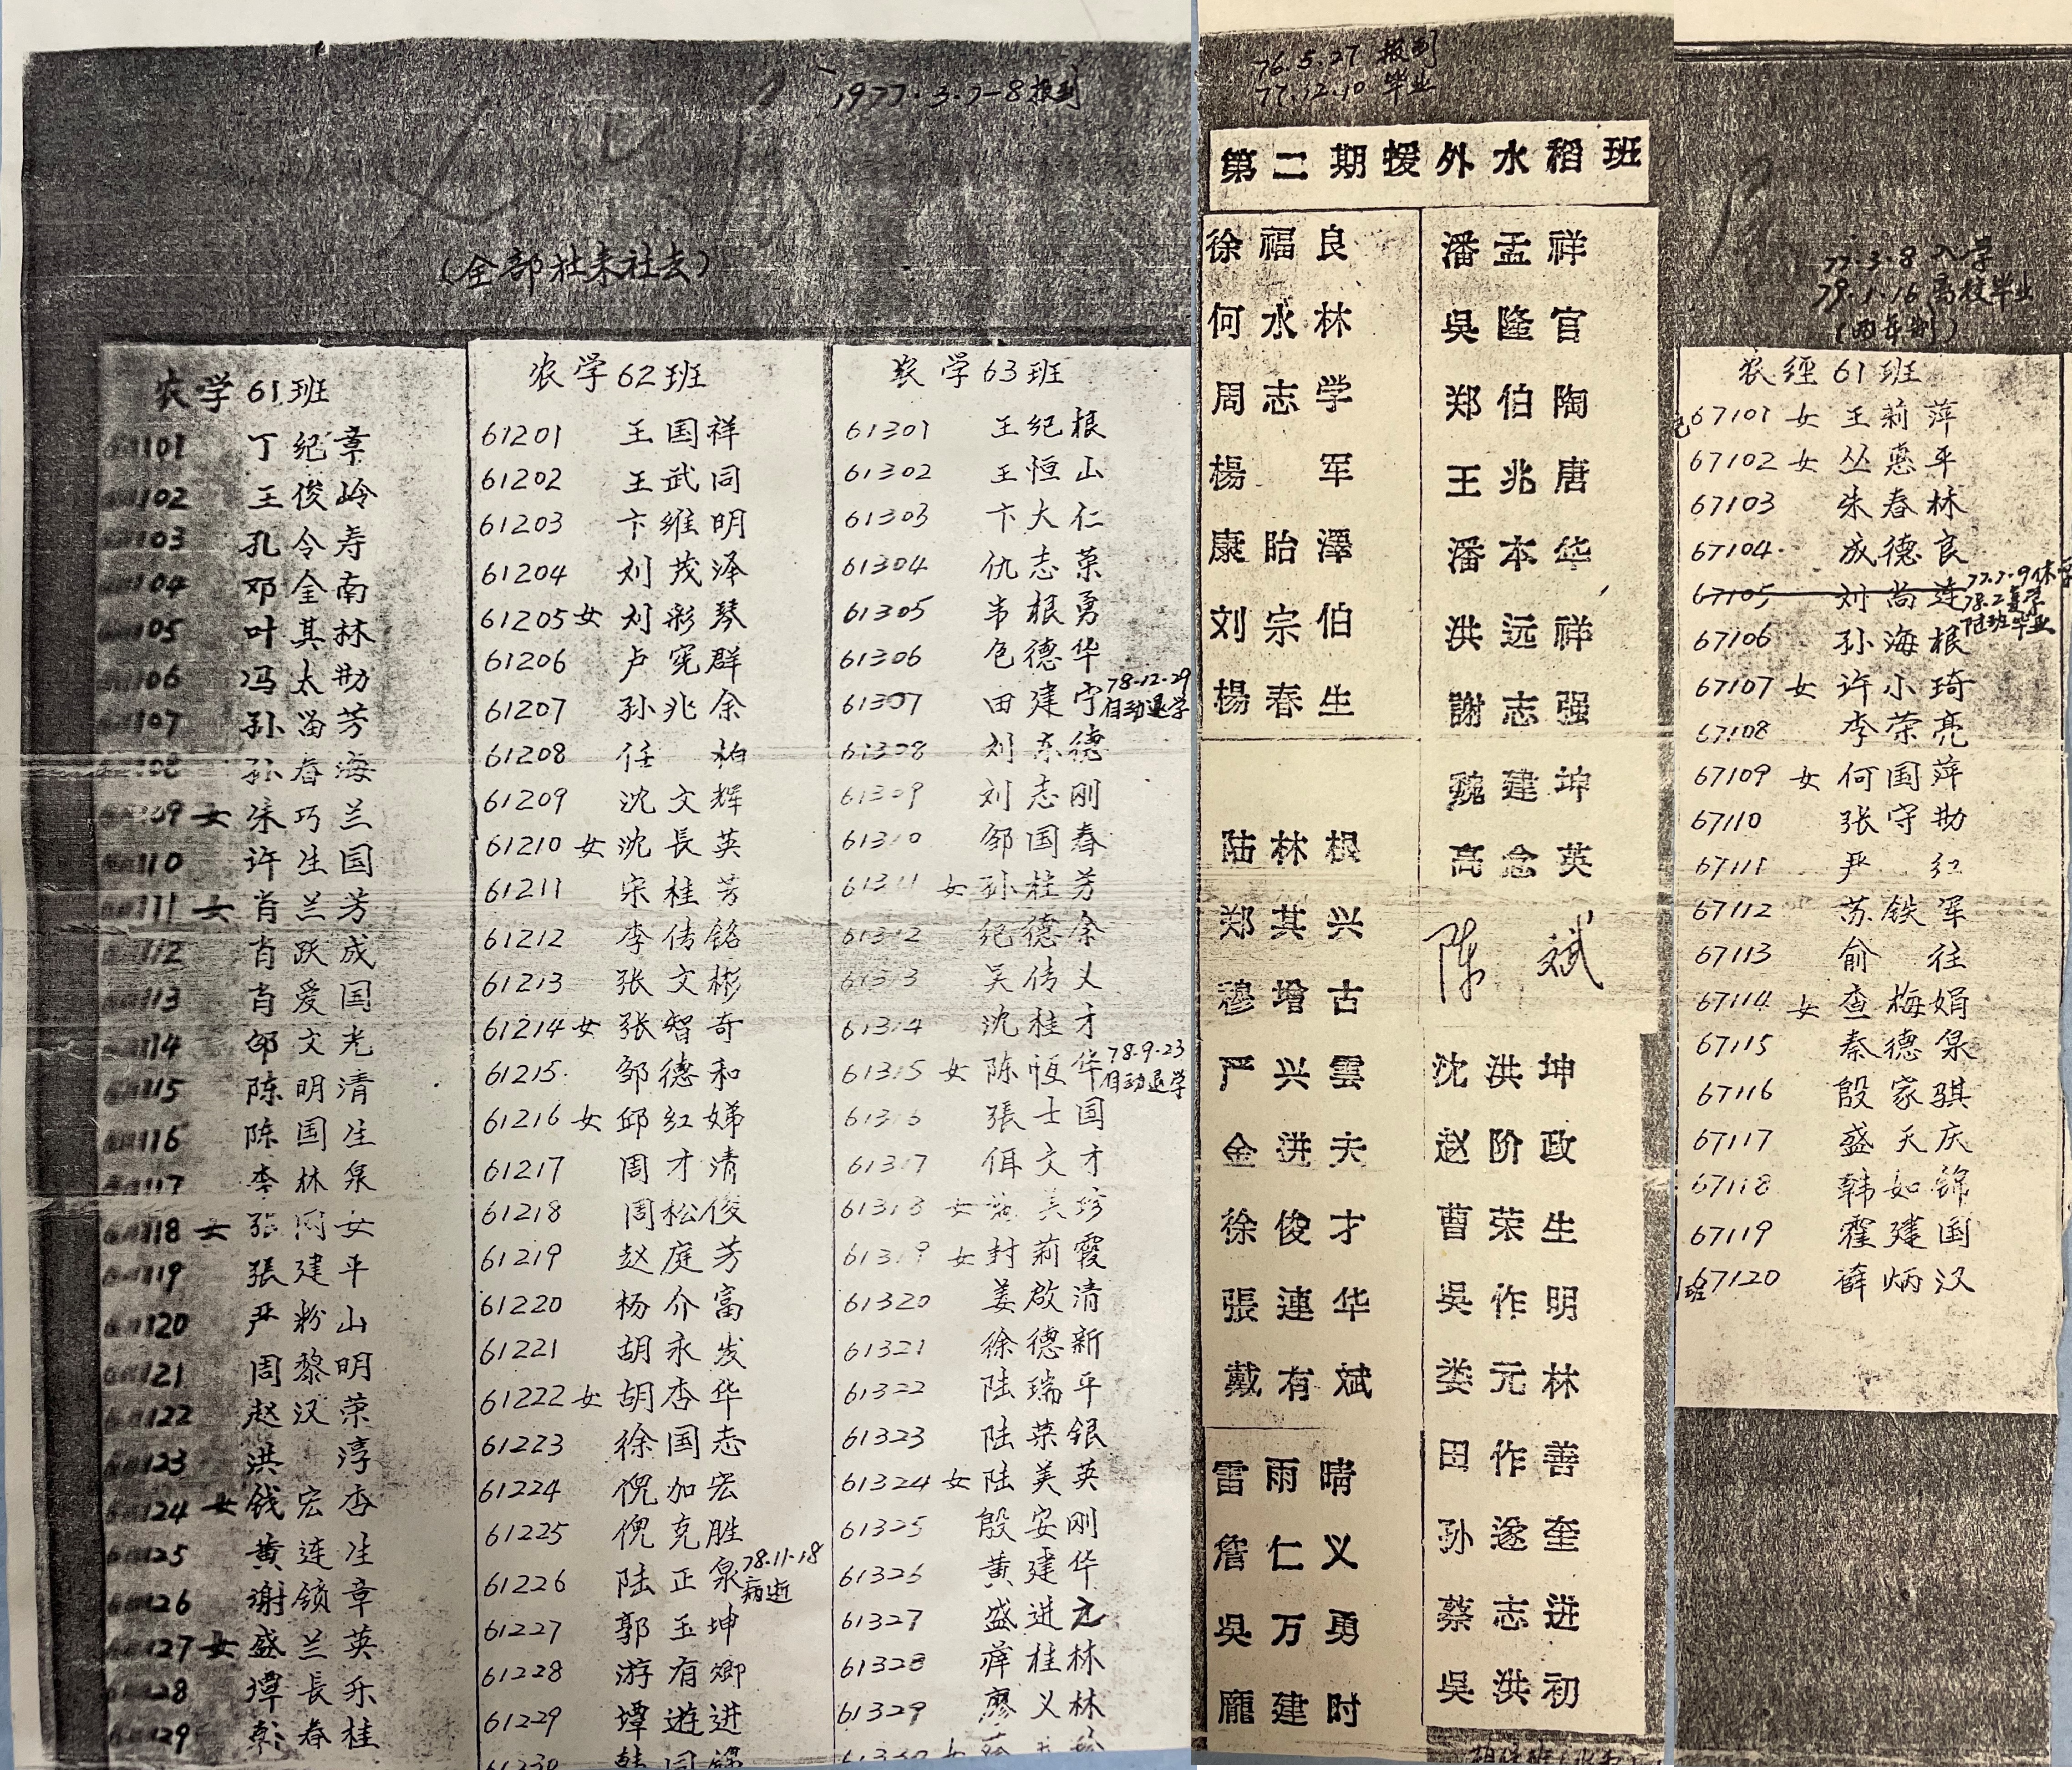 1977.3.7-8报到
(全部社来社去)
农学61班
101 丁纪章
102 王俊岭
103 孔令寿
104 邓全南
105 叶其林
106 冯太勋
107 孙留芳
108 孙春海
109 女 朱巧兰
110 许生国
111 女 肖兰芳
112 肖跃成
113 肖爱国
114 邵文光
115 陈明清
116 陈国生
117 李林泉
118 女 张 女
119 張建平
120 严粉山
121 周黎明
122 赵汉荣
123 洪 淳
124 女 钱宏杏
125 黄连生
126 谢锁章
127 女 盛兰英
128 谭長乐
129 彭春桂
农学62班
61201 王国祥
61202 王武同
61203 卞维明
61204 刘茂泽
61205 女 刘彩琴
61206 卢宪群
61207 孙兆余
61208 任 柏
61209 沈文辉
61210 女 沈長英
61211 宋桂芳
61212 李传铭
61213 张文彬
61214 女 张智奇
61215 邹德和
61216 女 邱红娣
61217 周才清
61218 周松俊
61219 赵庭芳
61220 杨介富
61221 胡永发
61222 女 胡杏华
61223 徐国志
61224 倪加宏
61225 倪克胜
61226 陆正泉 78.11.18 病逝
61227 郭玉坤
61228 游有卿
61229 谭遊进
61230 韩同
农学63班
61301 王纪根
61302 王恒山
61303 卞大仁
61304 仇志荣
61305 韦根勇
61306 包德华
61307 田建宁 78.12.29 自动退学
61308 刘东德
61309 刘志刚
61310 邹国春
61311 女 孙桂芳
61312 纪德余
61313 吴传义
61314 沈桂才
61315 女 陈恒华 78.9.23 自动退学
61316 張士国
61317 佴文才
61318 女 美珍
61319 女 封莉霞
61320 姜啟清
61321 徐德新
61322 陆瑞平
61323 陆荣银
61324 女 陆美英
61325 殷安刚
61326 黄建华
61327 盛进之
61328 薛桂林
61329 廖义林
76.5.27 报到
77.12.10 毕业
第二期援外水稻班
徐福良
何水林
周志学
楊 军
康贻澤
刘宗伯
楊春生
陆林根
郑其兴
穆增古
严兴雲
金洪夫
徐俊才
張連华
戴有斌
雷雨晴
詹仁义
吳万勇
龐建时
潘孟祥
吳隆官
郑伯陶
王兆唐
潘本华
洪远祥
謝志强
魏建坤
高念英
陈 斌
沈洪坤
赵阶政
曹荣生
吳作明
娄元林
田作善
孙遂奎
蔡志进
吴洪初
77.3.8 入学
79.1.16 离校毕业
(两年制)
农经61班
67101 女 王莉萍
67102 女 丛惠平
67103 朱春林
67104 成德良
67105 刘尚连 77.7.9休学 78.2复学
67106 孙海根
67107 女 许小琦
67108 李荣亮
67109 女 何国萍
67110 张守勋
67111 严 红
67112 苏铁军
67113 俞 往
67114 女 查梅娟
67115 秦德泉
67116 殷家骐
67117 盛天庆
67118 韩如锦
67119 霍建国
67120 薛炳汉